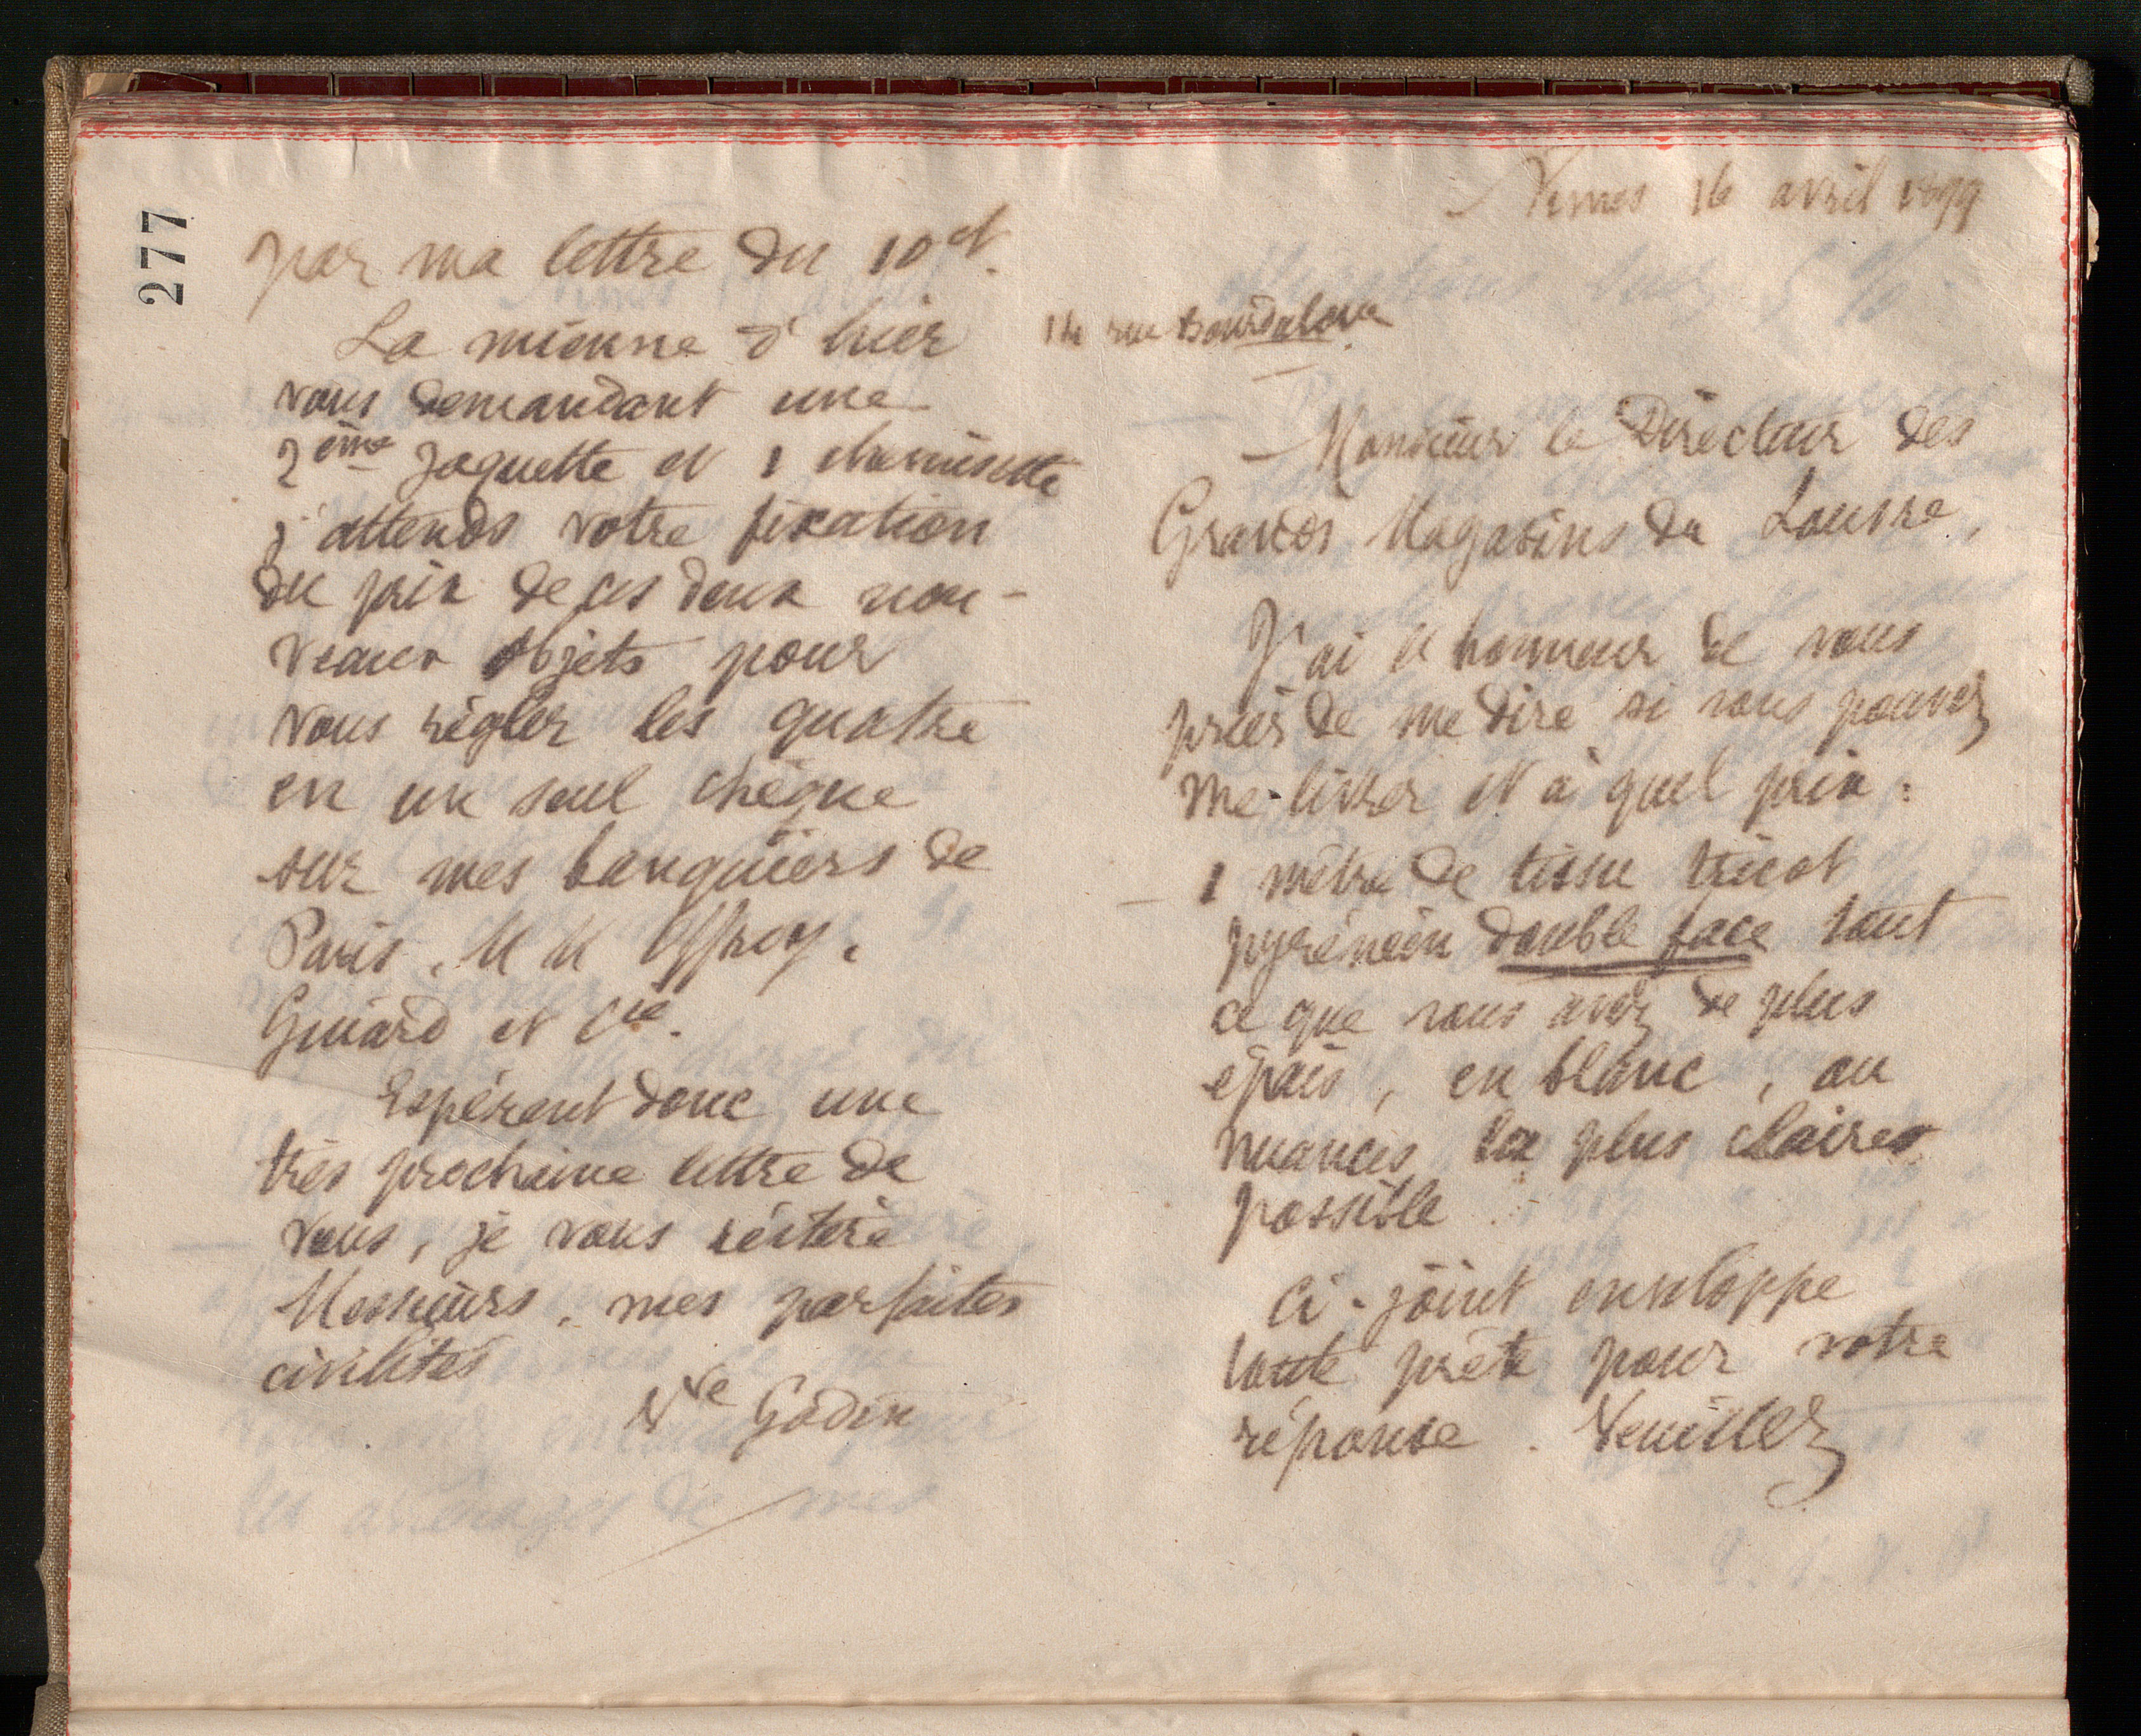 277
par ma lettre du 10 ct.
La mienne d'hier
vous demandant une
2ème jaquette et 1 chemisette
j'attends votre fixation
du prix de ces deux nou-
veaux objets pour
vous régler les quatre
en un seul chèque
sur mes banquiers de
Paris, M M Offroy,
Guiard et Cie.
Espérant donc une
très prochaine lettre de
vous, je vous réitère
Messieurs, mes parfaites
civilités
Vve Godin
Nimes 16 avril 1899
14 rue Bourdaloue
Monsieur le Directeur des
Grands Magasins du Louvre,
J'ai l'honneur de vous
prier de me dire si vous pouvez
me livrer et à quel prix :
1 mètre de tissu tricot
pyrénéen double face tout
ce que vous avez de plus
épais, en blanc, ou
nuances les plus claires
possible
Ci-joint enveloppe
toute prête pour votre
réponse. Veuillez